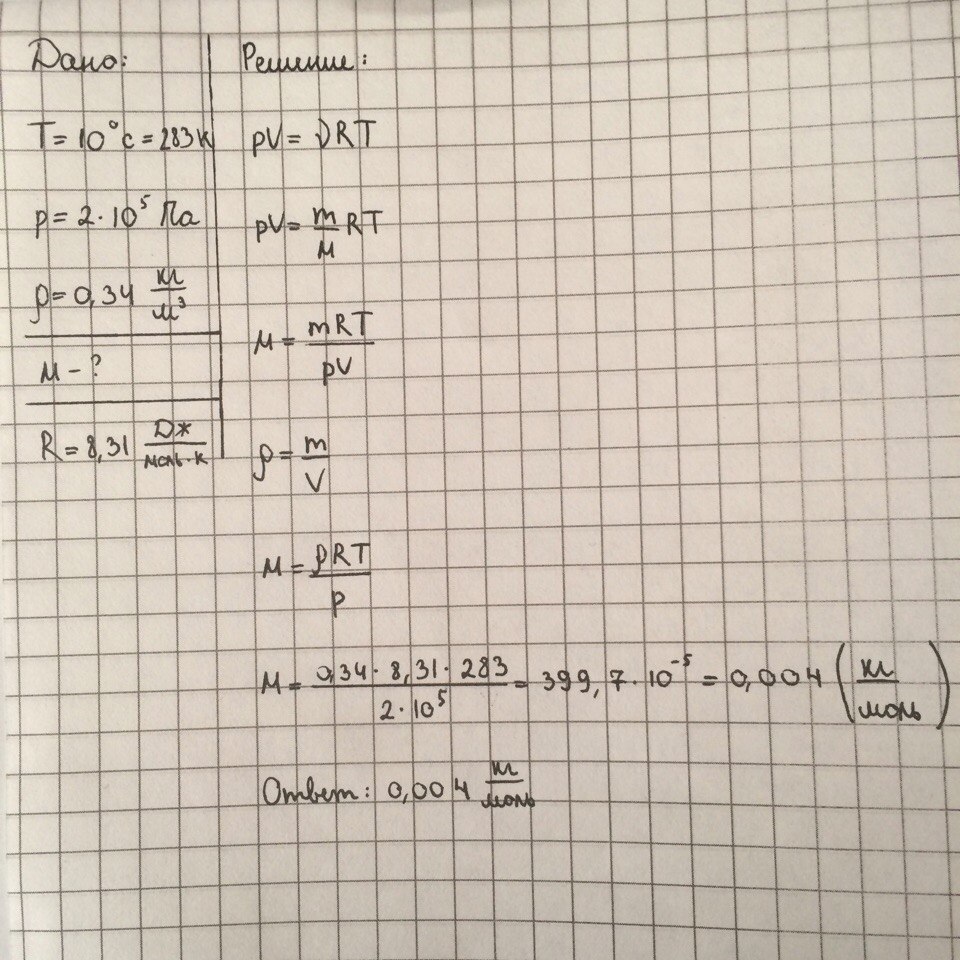 Дано:
T = 10°C = 283 К
p = 2 · 10⁵ Па
ρ = 0,34 кг/м³
M - ?
R = 8,31 Дж/моль·К
Решение:
pV = νRT
pV = m/M RT
M = mRT/pV
ρ = m/V
M = ρRT/p
M = 0,34 · 8,31 · 283/2 · 10⁵ = 399,7 · 10⁻⁵ = 0,004 (кг/моль)
Ответ: 0,004 кг/моль